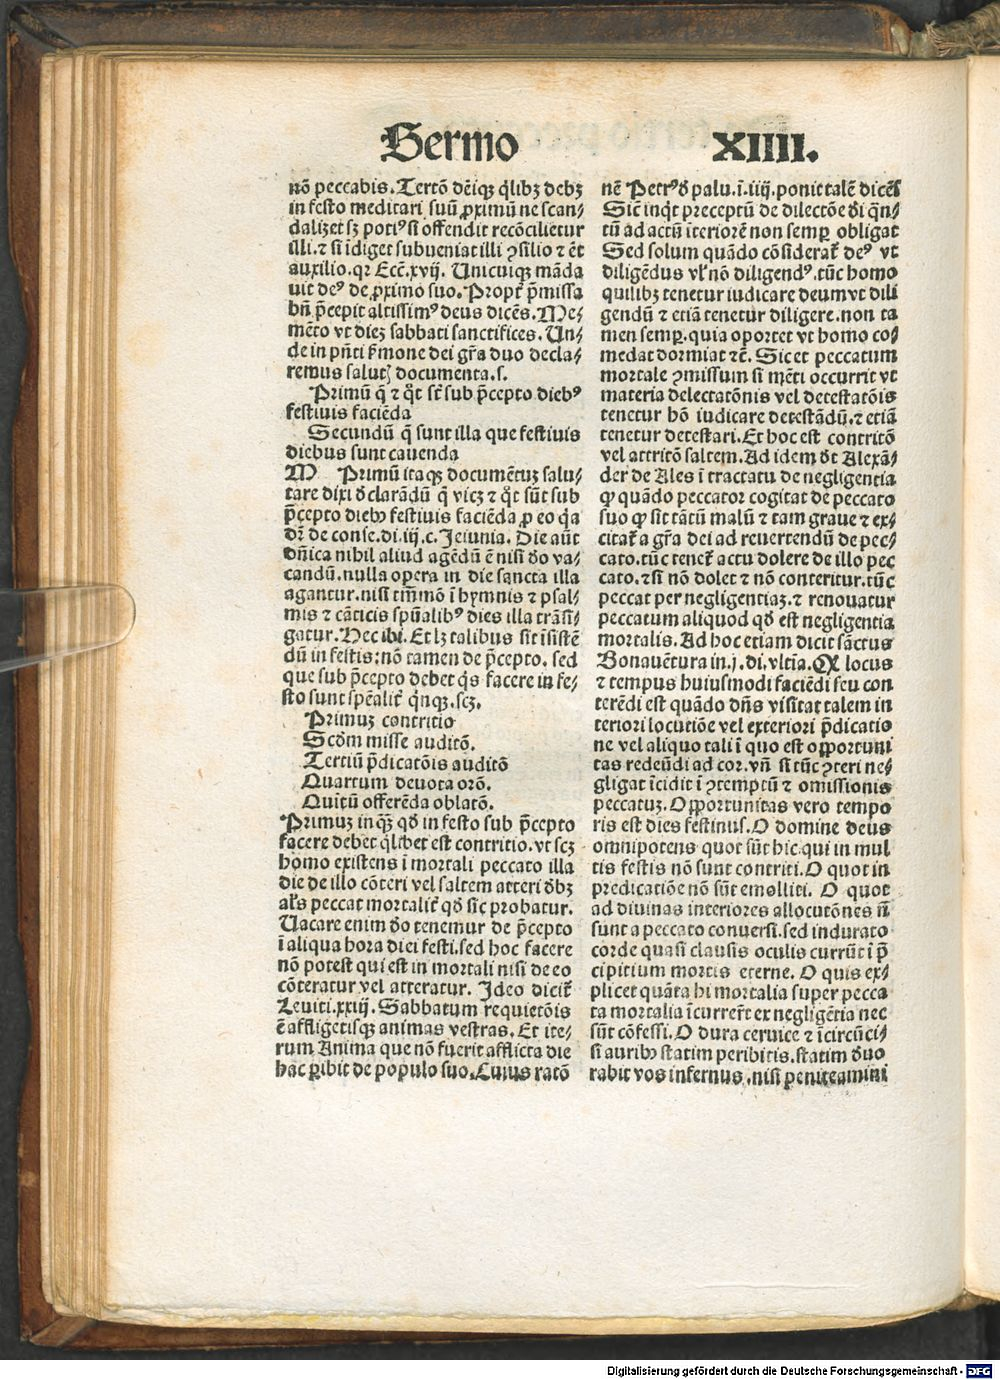 Sermo XIIII.
nō peccabis. Tertō dēiqꝫ q̄libꝫ debꝫ
in festo meditari suū ꝓximū ne scan⸗
dalizet sꝫ potiꝰ si offendit recōcilietur
illi. ⁊ si īdiget subueniat illi ꝯsilio ⁊ ēt
auxilio. qꝛ Eccē. xvij. Unicuiqꝫ māda
uit deꝰ de ꝓximo suo. Propt̄ p̄missa
bn̄ p̄cepit altissimꝰ deus dicēs. Me⸗
mēto vt diez sabbati sanctifices. Un⸗
de in pn̄ti ẜmone dei gr̄a duo decla⸗
remus salutꝭ documenta. s.
Primū q̄ ⁊ q̄t sūt sub p̄cepto diebꝰ
festiuis faciēda
Secundū q̄ sunt illa que festiuis
diebus sunt cauenda
M Primū itaqꝫ documētuꝫ salu⸗
tare dixi d̄clarādū q̄ vicꝫ ⁊ q̄t sūt sub
p̄cepto diebꝰ festiuis faciēda ꝓ eo q̄a
dꝛ̄ de conse. di. iij. c. Jeiunia. Die aūt
dn̄ica nihil aliud agēdū ē nisi d̄o va⸗
candū. nulla opera in die sancta illa
agantur. nisi tm̄mō ī hymnis ⁊ psal⸗
mis ⁊ cāticis spūalibꝰ dies illa trāsi⸗
gatur. Hec ibi. Et lꝫ talibus sit īsistē
dū in festis: nō tamen de p̄cepto. sed
que sub p̄cepto debet q̄s facere in fe⸗
sto sunt spēalit̄ q̄nqꝫ. scꝫ.
Primuꝫ contritio
Scd̄m misse auditō.
Tertiū p̄dicatōis auditō
Quartum deuota orō.
Quītū offerēda oblatō.
Primuꝫ inqꝫ qd̄ in festo sub p̄cepto
facere debet q̄libet est contritio. vt scꝫ
homo existens ī mortali peccato illa
die de illo cōteri vel saltem atteri dꝫ
al̄s peccat mortalit̄ qd̄ sic probatur.
Uacare enim d̄o tenemur de p̄cepto
ī aliqua hora diei festi. sed hoc facere
nō potest qui est in mortali nisi de eo
cōteratur vel atteratur. Ideo dicit̄
Leuiti. xxiij. Sabbatum requietōis
ē affligetisqꝫ animas vestras. Et ite⸗
rum Anima que nō fuerit afflicta die
hac ꝑibit de populo suo. Cuius ratō
nē Petrꝰ d̄ palu. ī. iiij. ponit talē dicēs
Sic̄ inq̄t preceptū de dilectōe d̄i q̄n⸗
tū ad actū īteriorē non semꝑ obligat
Sed solum quādo cōsiderat̄ deꝰ vt
diligēdus vl̄ nō diligendꝰ. tūc homo
quilibꝫ tenetur iudicare deum vt dili
gendū ⁊ etiā tenetur diligere. non ta
men semꝑ. quia oportet vt homo co⸗
medat dormiat ⁊c̄. Sic et peccatum
mortale ꝯmissum si mēti occurrit vt
materia delectatōnis vel detestatōis
tenetur hō iudicare detestādū. ⁊ etiā
tenetur detestari. Et hoc est contritō
vel attritō saltem. Ad idem d̄t Alexā⸗
der de Ales ī tractatu de negligentia
ꝙ quādo peccator cogitat de peccato
suo ꝙ sit tātū malū ⁊ tam graue ⁊ ex⸗
citat̄ a gr̄a dei ad reuertendū de pec⸗
cato. tūc tenet̄ actu dolere de illo pec
cato. ⁊ si nō dolet ⁊ nō conteritur. tūc
peccat per negligentiaꝫ. ⁊ renouatur
peccatum aliquod qd̄ est negligentia
mortalis. Ad hoc etiam dicit sāctus
Bonauētura in. j. di. vltīa. Qꝫ locus
⁊ tempus huiusmodi faciēdi seu con
terēdi est quādo dn̄s visitat talem in
teriori locutiōe vel exteriori p̄dicatio
ne vel aliquo tali ī quo est opportuni
tas redeūdi ad cor. vn̄ si tūc ꝯteri ne⸗
gligat īcidit ī ꝯtemptū ⁊ omissionis
peccatuꝫ. Opportunitas vero tempo
ris est dies festiuus. O domine deus
omnipotens quot sūt hic. qui in mul
tis festis nō sunt contriti. O quot in
predicatiōe nō sūt emolliti. O quot
ad diuinas interiores allocutōnes n̄
sunt a peccato conuersi. sed indurato
corde quasi clausis oculis currūt ī p̄
cipitium mortis eterne. O quis ex⸗
plicet quāta hi mortalia super pecca
ta mortalia īcurrēt ex negligētia nec
sūt cōfessi. O dura ceruice ⁊ īcircūci⸗
si auribꝰ statim peribitis. statim d̄uo
rabit vos infernus. nisi peniteamini
Digitalisierung gefördert durch die Deutsche Forschungsgemeinschaft - DFG